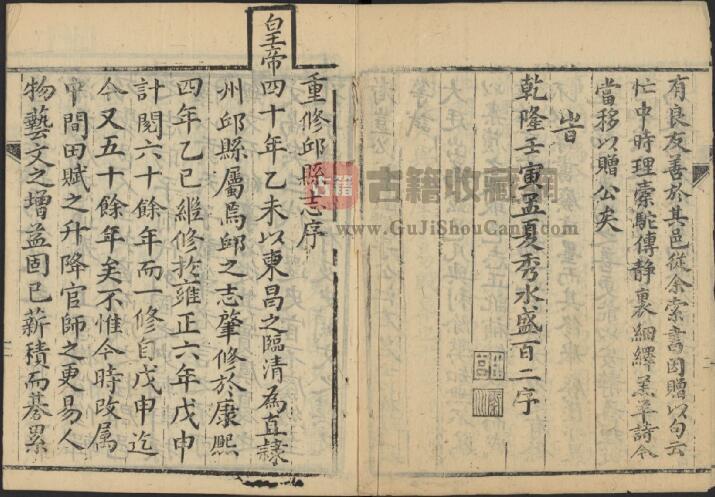 有良友善於其邑從余索書因贈以句云
忙中時理橐駝傳靜裏細繹羔羊詩今
當移以贈公矣
旹
乾隆壬寅孟夏秀水盛百二字
重修邱縣志序
皇帝四十年乙未以東昌之臨清為直隸
州邱縣屬焉邱之志肇修於康熙
四年乙巳繼修於雍正六年戊申
計閱六十餘年而一修自戊申迄
今又五十餘年矣不惟今時改属
中間田賦之升降官師之更易人
物藝文之增益固已薪積而綦累
古籍 古籍收藏网
www.GuJiShouCang.com